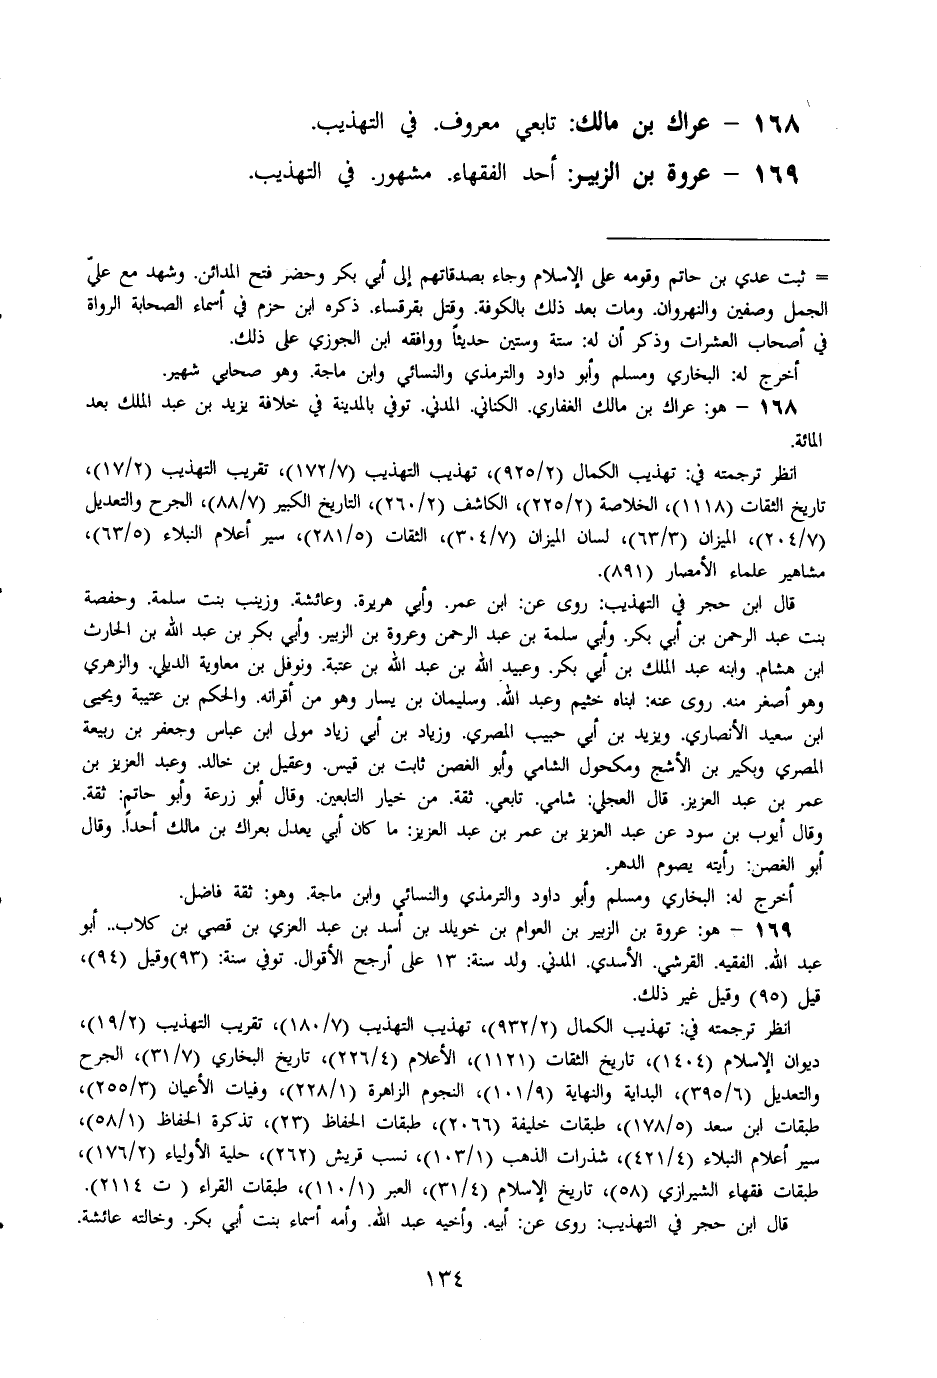 ١٦٨ – عراك بن مالك: تابعي معروف. في التهذيب.
١٦٩ – عروة بن الزبير: أحد الفقهاء. مشهور. في التهذيب.
= ثبت عدي بن حاتم وقومه على الإسلام وجاء بصدقاتهم إلى أبي بكر وحضر فتح المدائن. وشهد مع عليّ
الجمل وصفين والنهروان. ومات بعد ذلك بالكوفة. وقتل بقرقساء. ذكره ابن حزم في أسماء الصحابة الرواة
في أصحاب العشرات وذكر أن له: ستة وستين حديثاً ووافقه ابن الجوزي على ذلك.
أخرج له: البخاري ومسلم وأبو داود والترمذي والنسائي وابن ماجة. وهو صحابي شهير.
١٦٨ – هو: عراك بن مالك الغفاري. الكناني. المدني. توفي بالمدينة في خلافة يزيد بن عبد الملك بعد
المائة.
انظر ترجمته في: تهذيب الكمال (٩٢٥/٢)، تهذيب التهذيب (١٧٢/٧)، تقريب التهذيب (١٧/٢)،
تاريخ الثقات (١١١٨)، الخلاصة (٢٢٥/٢)، الكاشف (٢٦٠/٢)، التاريخ الكبير (٨٨/٧)، الجرح والتعديل
(٢٠٤/٧)، الميزان (٦٣/٣)، لسان الميزان (٣٠٤/٧)، الثقات (٢٨١/٥)، سير أعلام النبلاء (٦٣/٥)،
مشاهير علماء الأمصار (٨٩١).
قال ابن حجر في التهذيب: روى عن: ابن عمر. وأبي هريرة. وعائشة. وزينب بنت سلمة. وحفصة
بنت عبد الرحمن بن أبي بكر. وأبي سلمة بن عبد الرحمن وعروة بن الزبير. وأبي بكر بن عبد الله بن الحارث
ابن هشام. وابنه عبد الملك بن أبي بكر. وعبيد الله بن عبد الله بن عتبة. ونوفل بن معاوية الديلي. والزهري
وهو أصغر منه. روى عنه: ابناه خثيم وعبد الله. وسليمان بن يسار وهو من أقرانه. والحكم بن عتيبة ويحيى
ابن سعيد الأنصاري. ويزيد بن أبي حبيب المصري. وزياد بن أبي زياد مولى ابن عباس وجعفر بن ربيعة
المصري وبكير بن الأشج ومكحول الشامي وأبو الغصن ثابت بن قيس. وعقيل بن خالد. وعبد العزيز بن
عمر بن عبد العزيز. قال العجلي: شامي. تابعي. ثقة. من خيار التابعين. وقال أبو زرعة وأبو حاتم: ثقة.
وقال أيوب بن سود عن عبد العزيز بن عمر بن عبد العزيز: ما كان أبي يعدل بعراك بن مالك أحداً. وقال
أبو الغصن: رأيته يصوم الدهر.
أخرج له: البخاري ومسلم وأبو داود والترمذي والنسائي وابن ماجة. وهو: ثقة فاضل.
١٦٩ – هو: عروة بن الزبير بن العوام بن خويلد بن أسد بن عبد العزي بن قصي بن كلاب.. أبو
عبد الله. الفقيه. القرشي. الأسدي. المدني. ولد سنة: ١٣ على أرجح الأقوال. توفي سنة: (٩٣)وقيل (٩٤)،
قيل (٩٥) وقيل غير ذلك.
انظر ترجمته في: تهذيب الكمال (٩٣٢/٢)، تهذيب التهذيب (١٨٠/٧)، تقريب التهذيب (١٩/٢)،
ديوان الإسلام (١٤٠٤)، تاريخ الثقات (١١٢١)، الأعلام (٢٢٦/٤)، تاريخ البخاري (٣١/٧)، الجرح
والتعديل (٣٩٥/٦)، البداية والنهاية (١٠١/٩)، النجوم الزاهرة (٢٢٨/١)، وفيات الأعيان (٢٥٥/٣)،
طبقات ابن سعد (١٧٨/٥)، طبقات خليفة (٢٠٦٦)، طبقات الحفاظ (٢٣)، تذكرة الحفاظ (٥٨/١)،
سير أعلام النبلاء (٤٢١/٤)، شذرات الذهب (١٠٣/١)، نسب قريش (٢٦٢)، حلية الأولياء (١٧٦/٢)،
طبقات فقهاء الشيرازي (٥٨)، تاريخ الإسلام (٣١/٤)، العبر (١١٠/١)، طبقات القراء ( ت ٢١١٤).
قال ابن حجر في التهذيب: روى عن: أبيه. وأخيه عبد الله. وأمه أسماء بنت أبي بكر. وخالته عائشة.
١٣٤